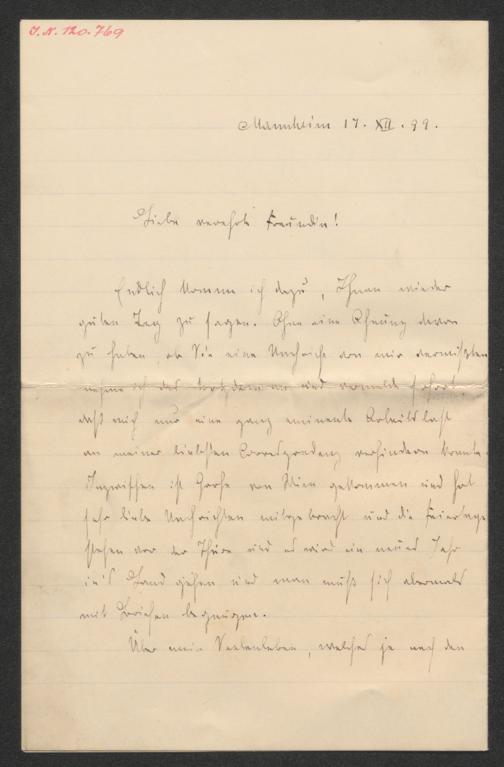 I.N. 120.769
Mannheim 17. XII. 99.
Liebe verehrte Freundin!
Endlich komme ich dazu, Ihnen wieder
guten Tag zu sagen. Ohne eine Ahnung davon
zu haben, ob Sie eine Nachricht von mir vermißten
nehme ich das trotzdem an und vermelde sofort,
daß mich nur eine ganz eminente Arbeitslast
an meiner liebsten Correspondenz verhindern konnte.
Inzwischen ist Grethe von Wien gekommen und hat
sehr liebe Nachrichten mitgebracht und die Feiertage
stehen vor der Thüre und es wird ein neues Jahr
in's Land gehen und man muß sich abermals
mit Briefen begnügen.
Über mein Seelenleben, welches je nach den